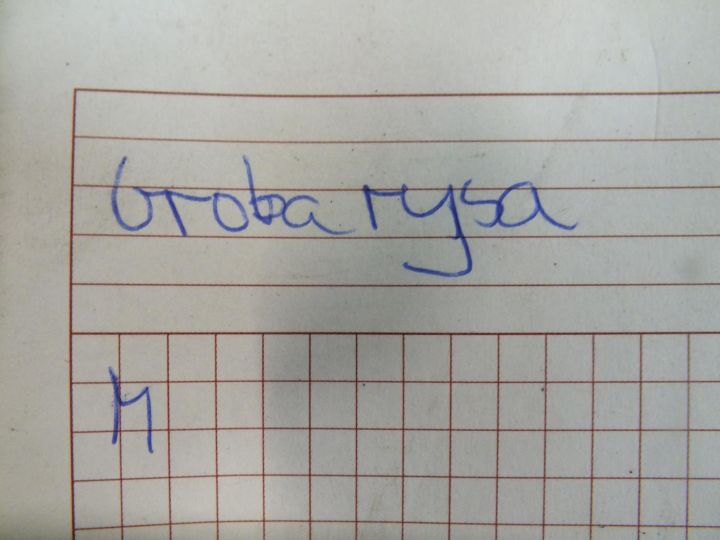 Groba rysa
M